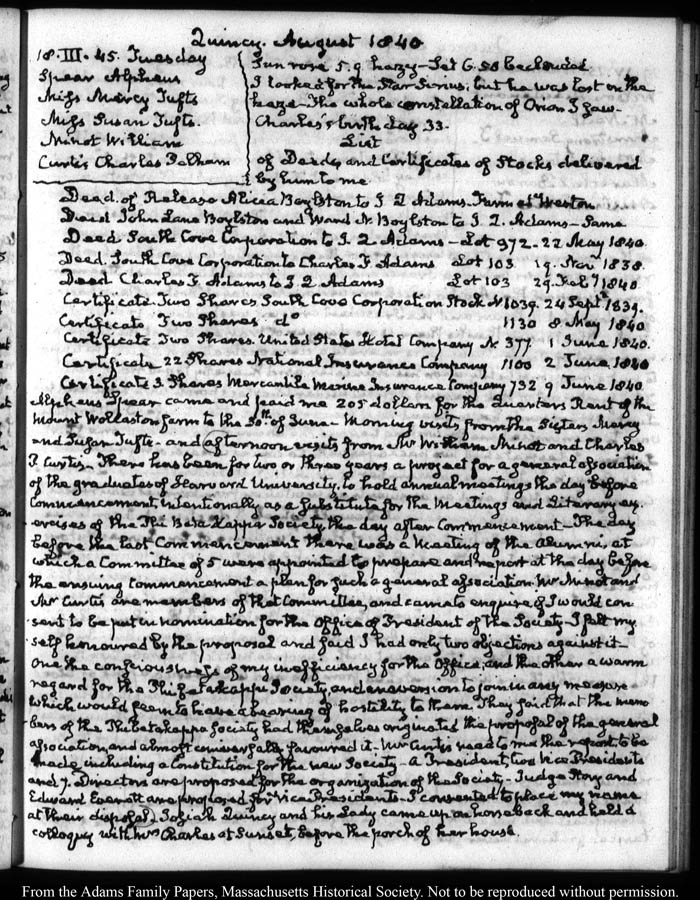 Quincy. August 1840
18. III. 45. Tuesday
Spear Alpheus
Miss Mercy Tufts
Miss Susan Tufts.
Minot William
Curtis Charles Pelham
Sun rose 5.9 hazy – Set 6.58 beclouded
I looked for the Star Sirius; but he was lost in the
haze – The whole constellation of Orion I saw.
Charles's birth day 33.
List
of Deeds and Certificates of Stocks delivered
by him to me
Deed of Release Alicia Boylston to J Q Adams. Farm at Weston
Deed John Lane Boylston and Ward N. Boylston to J. Q. Adams – Same
Deed South Cove Corporation to J. Q Adams – Lot 972. 22 May 1840.
Deed. South Cove Corporation to Charles F. Adams Lot 103 19. 1838.
Deed Charles F. Adams to J. Q Adams Lot 103 29. Feby 1840.
Certificate Two Shares South Cove Corporation Stock N 1039. 24 Septr 1839.
Certificate Two Shares do 1130 8 May 1840
Certificate Two Shares. United States Hotel Company N. 377 1 June 1840.
Certificate 22 Shares National Insurance Company 1100 2 June 1840
Certificate 3. Shares Mercantile Marine Insurance Company 732 9 June 1840.
Alpheus Spear came and paid me 205 dollars for the Quarters Rent of the
Mount Wollaston farm to the 30th of June – Morning visits from the Sisters Mercy
and Susan Tufts – and afternoon visits from Mr William Minot and Charles
P. Curtis – There has been for two or three years a project for a general association
of the graduates of Harvard University, to hold annual meetings the day before
Commencement, intentionally as a substitute for the Meetings and Literary ex-
ercises of the Phi Beta Kappa Society, the day after Commencement – The day
before the last Commencement there was a meeting of the Alumni, at
which a Committee of 5 were appointed to prepare and report at the day before
the ensuing Commencement a plan for such a general association. Mr Minot and
Mr Curtis are members of that Committee, and came to enquire if I would con-
sent to be put in nomination for the Office of President of the Society – I felt my
self honoured by the proposal and said I had only two objections against it –
One the consciousness of my inefficiency for the Office, and the other a warm
regard for the Phi Betakappa Society, and an aversion to join in any measure
which would seem to have a bearing of hostility to them. They said that the mem-
bers of the Phi betakappa Society had themselves originated the proposal of the general
association, and almost universally favoured it. Mr Curtis read to me the report, to be
made, including a Constitution for the new Society – A President, two Vice Presidents
and 7. Directors are proposed for the organization of the Society – Judge Story and
Edward Everett are proposed for Vice Presidents. I consented to place my name
at their disposal. Josiah Quincy and his Lady came up on horseback and held a
colloquy with Mrs Charles at Sunset, before the porch of her house.
From the Adams Family Papers, Massachusetts Historical Society. Not to be reproduced without permission.